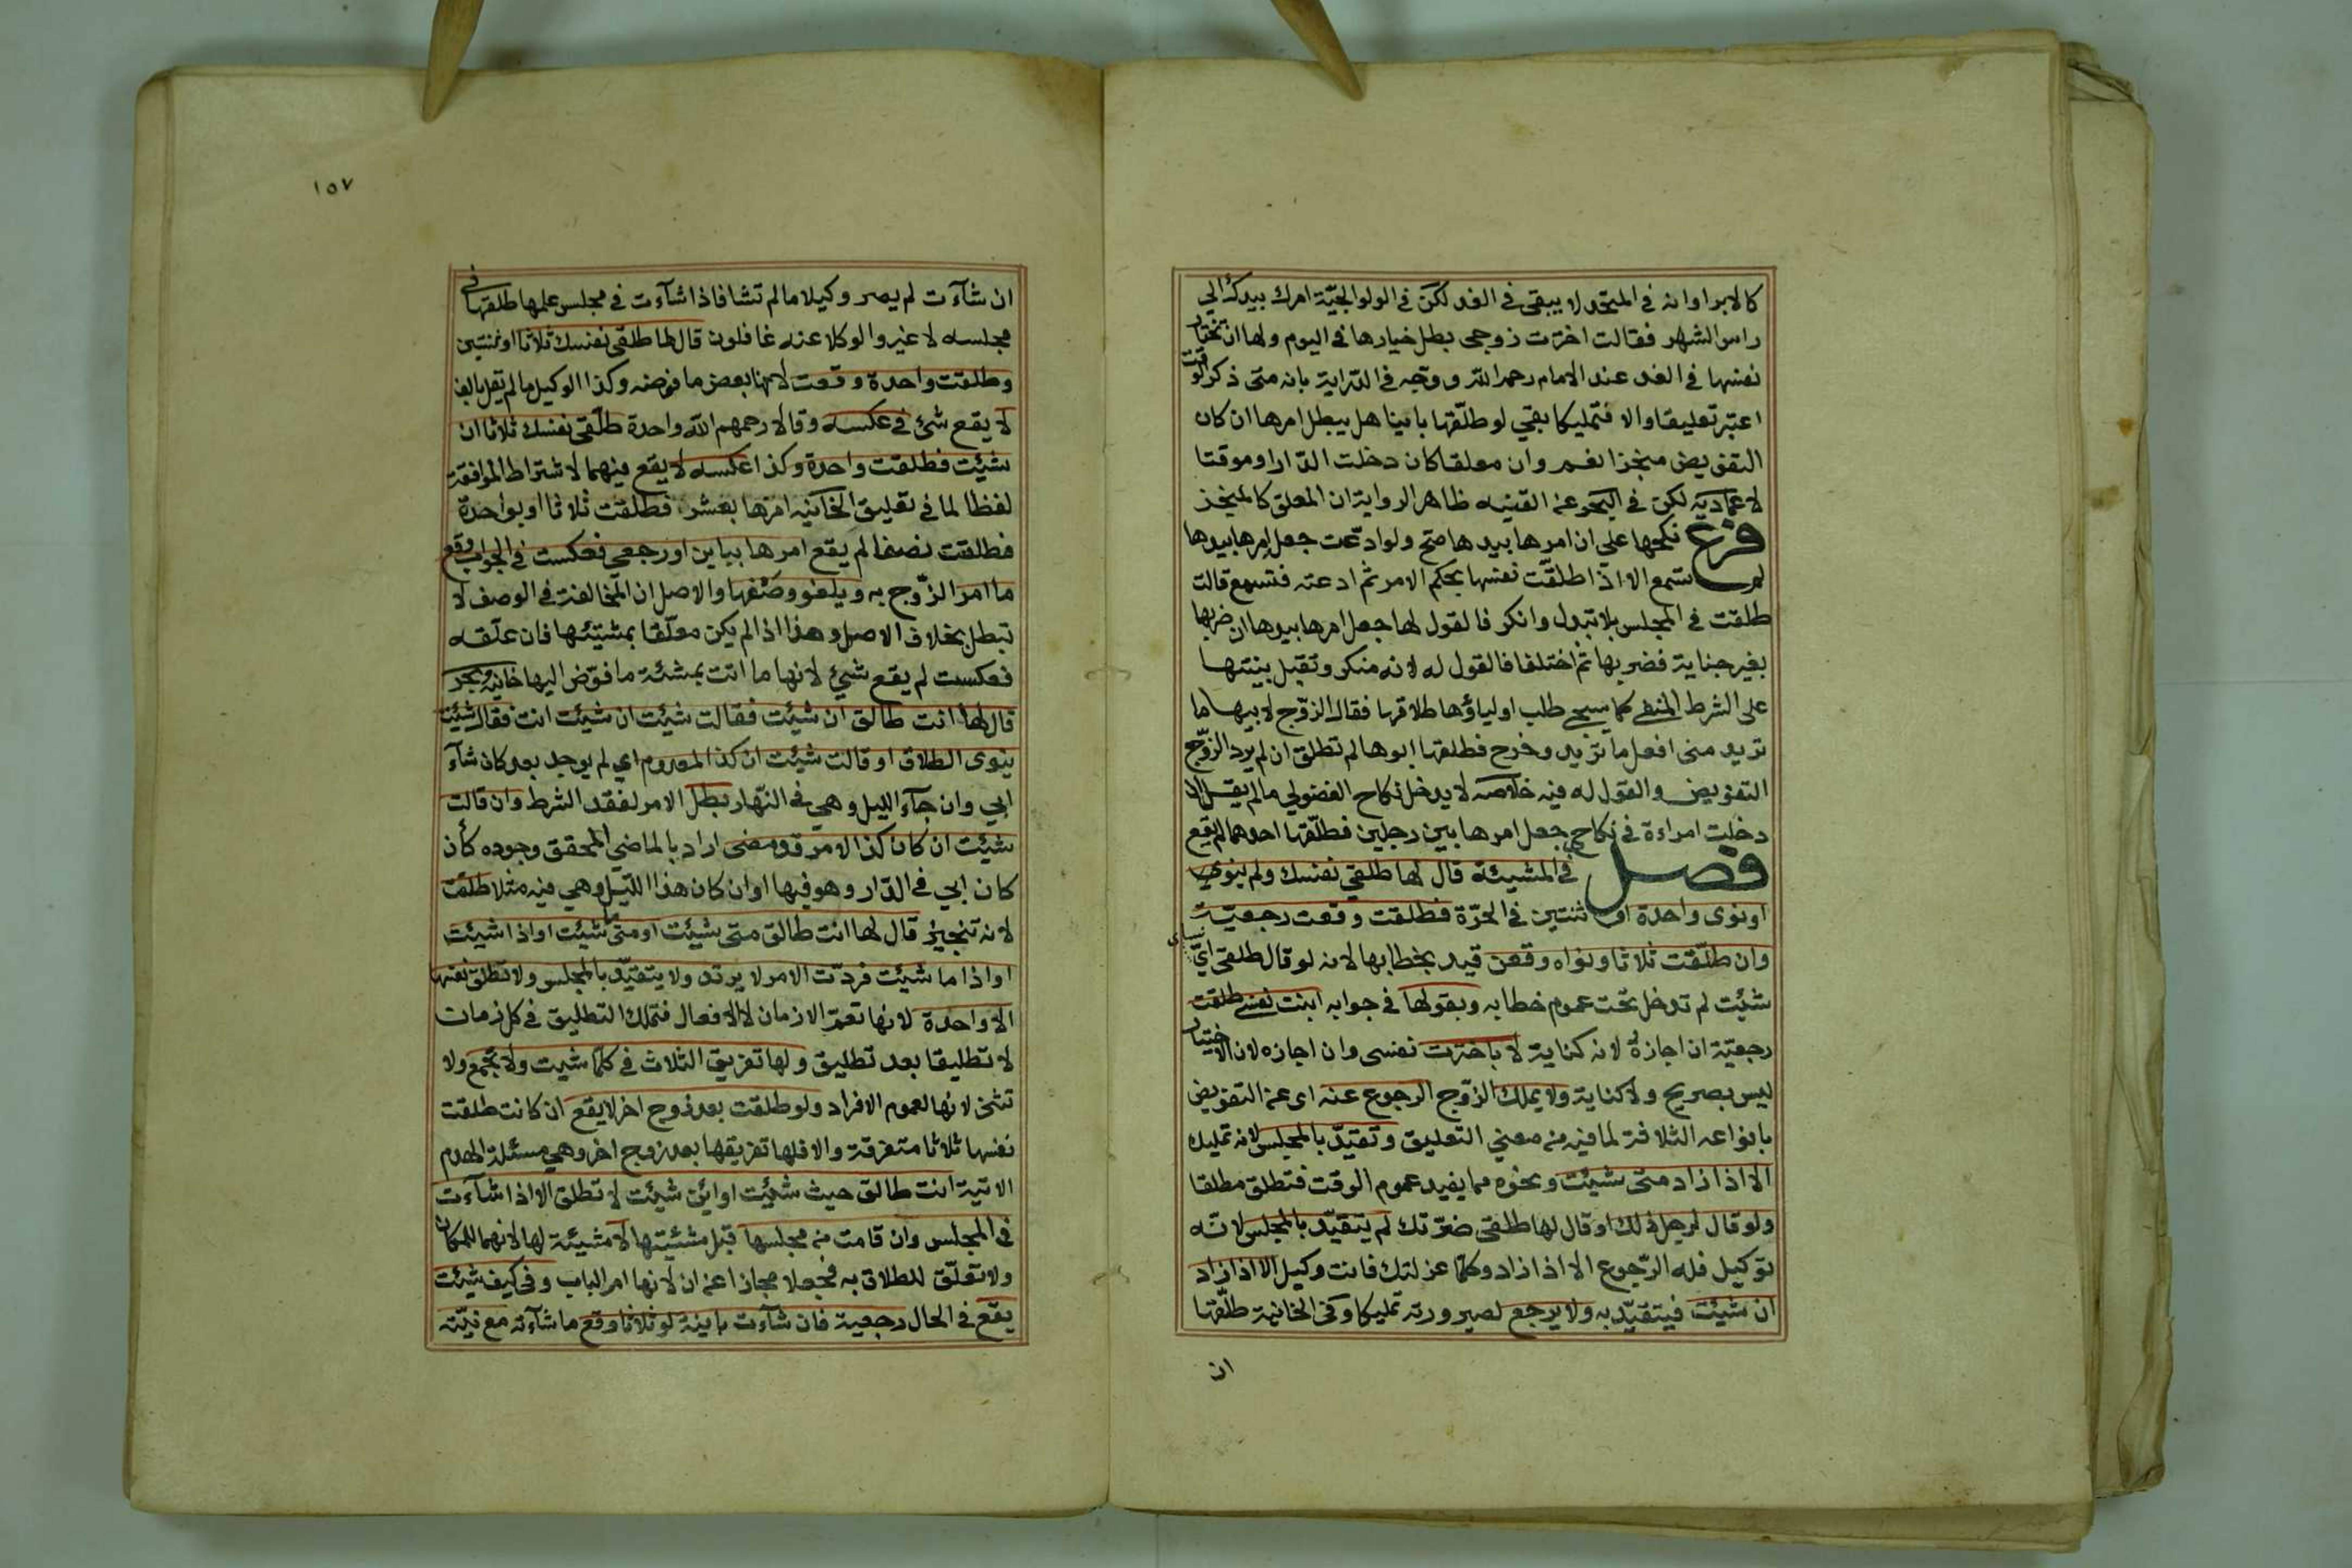 كالابراوانه في المتحد لا يبقى في الغد لكن في الولوالجيّة امرك بيدك الي
راس الشهر فقالت اخترت زوجي بطل خيارها في اليوم ولها ان تختار
نفسها في الغد عند الامام رحمه الله ووجه في الدّراية بانه متى ذكر الوقت
اعتبر تعليقا والا فتمليكا بقي لو طلّقها باينا هل يبطل امرها ان كان
التفويض منجزا نعم وان معلقا كان دخلت الدّار او موقتا
لا عمادية لكن في البحر عن القنيه ظاهر الرواية ان المعلق كالمنجز
فرع نكحها على ان امرها بيدها صح ولو ادعت جعل امرها بيدها
لم تسمع الا اذا طلقّت نفسها بحكم الامر ثم ادعته فتسمع قالت
طلقت في المجلس بلا تبدل وانكر فالقول لها جعل امرها بيدها ان ضربها
بغير جناية فضربها ثم اختلفا فالقول له لانه منكر وتقبل بينتها
على الشرط المنفي كما سيجي طلب اولياؤها طلاقها فقال الزوّج لابيها ما
تريد مني افعل ما تريد وخرج فطلقها ابوها لم تطلق ان لم يرد الزوّج
التفويض والقول له فيه خلاصه لا يدخل نكاح الفضولي ما لم يقل ان
دخلت امراءة في نكاح جعل امرها بين رجلين فطلّقها احدهما لم يقع
فصل في المشيئة قال لها طلقي نفسك ولم ينوي
او نوى واحدة او ثنتين في الحرّة فطلقت وقعت رجعيّة
وان طلّقت ثلاثا ونواه وقعن قيد بخطابها لانه لو قال طلقي ايّ نساى
شئت لم تدخل تحت عموم خطابه وبقولها في جوابه ابنت نفسي طلقت
رجعيّة ان اجازه لانه كناية لا باخترت نفسي وان اجازه لان الاختيار
ليس بصريح ولا كناية ولا يملك الزوّج الرجوع عنه اى عن التفويض
بانواعه الثلاثة لما فيه من معني التعليق وتقيّد بالمجلس لانه تمليك
الا اذا زاد متى شئت ونحوه مما يفيد عموم الوقت فتطلق مطلقا
ولو قال لرجل ذلك او قال لها طلقي ضرّتك لم يتقيّد بالمجلس لانّه
توكيل فله الرّجوع الا اذا زاد وكلما عزلتك فانت وكيل الا اذا زاد
ان شئت فيتقيّد به ولا يرجع لصيرورته تمليكا وفي الخانية طلّقها
ان
١٥٧
ان شآءت لم يصر وكيلا ما لم تشا فاذا شآءت في مجلس علمها طلقها في
مجلسه لا غير والوكلا عنه غافلون قال لها طلقي نفسك ثلاثا او ثنتين
وطلقت واحدة وقعت لانها بعض ما فوضه وكذا الوكيل ما لم يقل بالف
لا يقع شئ في عكسه وقالا رحمهم الله واحدة طلّقي نفسك ثلاثا ان
شئت فطلقت واحدة وكذا عكسه لا يقع فيهما لاشتراط الموافقة
لفظا لما في تعليق الخانيه امرها بعشر فطلقت ثلاثا او بواحدة
فطلقت نصفا لم يقع امرها بباين او رجعي فعكست في الجواب وقع
ما امر الزوّج به ويلغو وصفها والاصل ان المخالفة في الوصف لا
تبطل بخلاف الاصل وهذا اذا لم يكن معلّقا بمشيّئتها فان علّقه
فعكست لم يقع شيئ لانها ما اتت بمشئة ما فوّض اليها خانيه وبحر
قال لها انت طالق ان شئت فقالت شئت ان شئت انت فقال شئت
ينوى الطلاق او قالت شئت ان كذا المعدوم اي لم يوجد بعد كان شآء
ابي وان جآء الليل وهي في النّهار بطل الامر لفقد الشرط وان قالت
شئت ان كان كذا الامر قد مضى اراد بالماضي المحقق وجوده كأن
كان ابي في الدّار وهو فيها او ان كان هذا اللّيل وهي فيه مثلا طلقت
لانه تنجيز قال لها انت طالق متى شئت او متى ما شئت او اذا شئت
او اذا ما شئت فردّت الامر لا يرتد ولا يتقيّد بالمجلس ولا تطلق نفسها
الا واحدة لانها تعمّ الازمان لا الافعال فتملك التطليق في كل زمان
لا تطليقا بعد تطليق ولها تفريق الثلاث في كلّما شيت ولا تجمع ولا
تثني لانها لعموم الافراد ولو طلقت بعد زوج اخر لا يقع ان كانت طلقت
نفسها ثلاثا متفرقة والا فلها تفريقها بعد زوج اخر وهي مسئلة الهدم
الاتية انت طالق حيث شئت او اين شئت لا تطلق الا اذا شآءت
في المجلس وان قامت من مجلسها قبل مشئيتها لا مشيئة لها لانهما للمكان
ولا تعلّق للطلاق به فجعلا مجازا عن ان لانها امر الباب وفي كيف شئت
يقع في الحال رجعية فان شآءت باينة او ثلاثا وقع ما شآءته مع نيّته